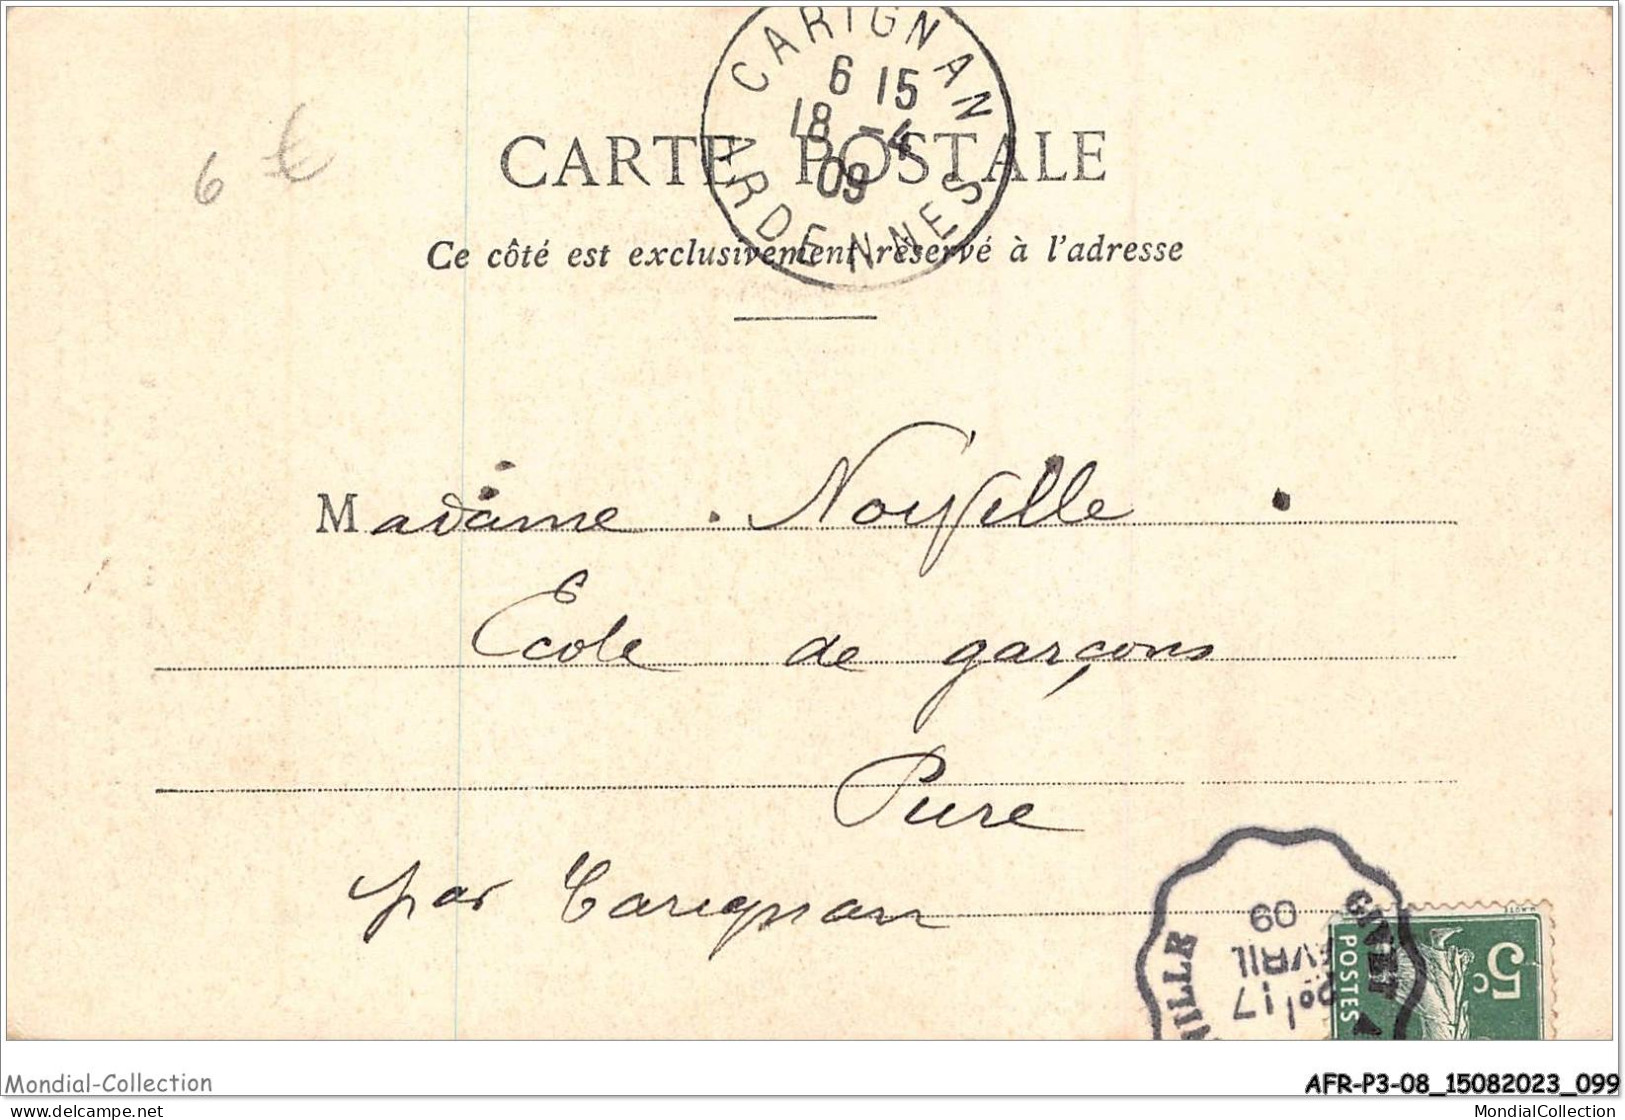 CARIGNAN
6 15
18 -4
09
ARDENNES
6 €
CARTE POSTALE
Ce côté est exclusivement réservé à l'adresse
Madame Noyelle
Ecole de garçons
Pure
par Carignan
GIVET A
17
AVRIL
09
POSTES
5c
Mondial-Collection
AFR-P3-08_15082023_099
www.delcampe.net
MondialCollection